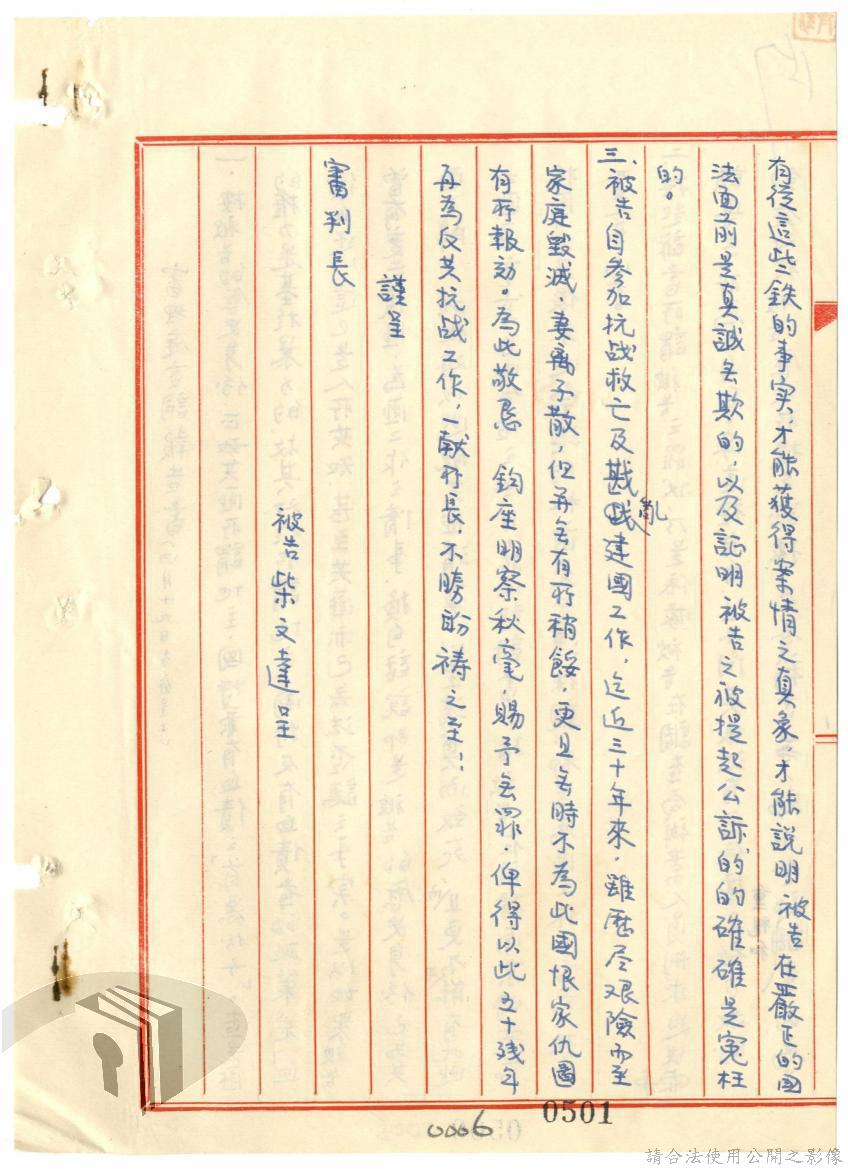 有從這些鉄的事实,才能獲得案情之真象,才能説明被告在嚴正的国
法面前是真誠无欺的,以及証明被告之被提起公訴的的確確是寃枉
的。
三、被告自參加抗战救亡及戡亂建國工作,迄近三十年來,雖歷尽艰險而至
家庭毀滅,妻离子散,但并无有所稍餒,更且无時不為此國恨家仇圖
有所報効。為此敬恳 鈞座明察秋毫,賜予无罪,俾得以此五十残年
再為反共抗战工作,一献所長,不勝盼祷之至!
謹呈
審判長
被告柴文達呈
0501
0006
請合法使用公開之影像